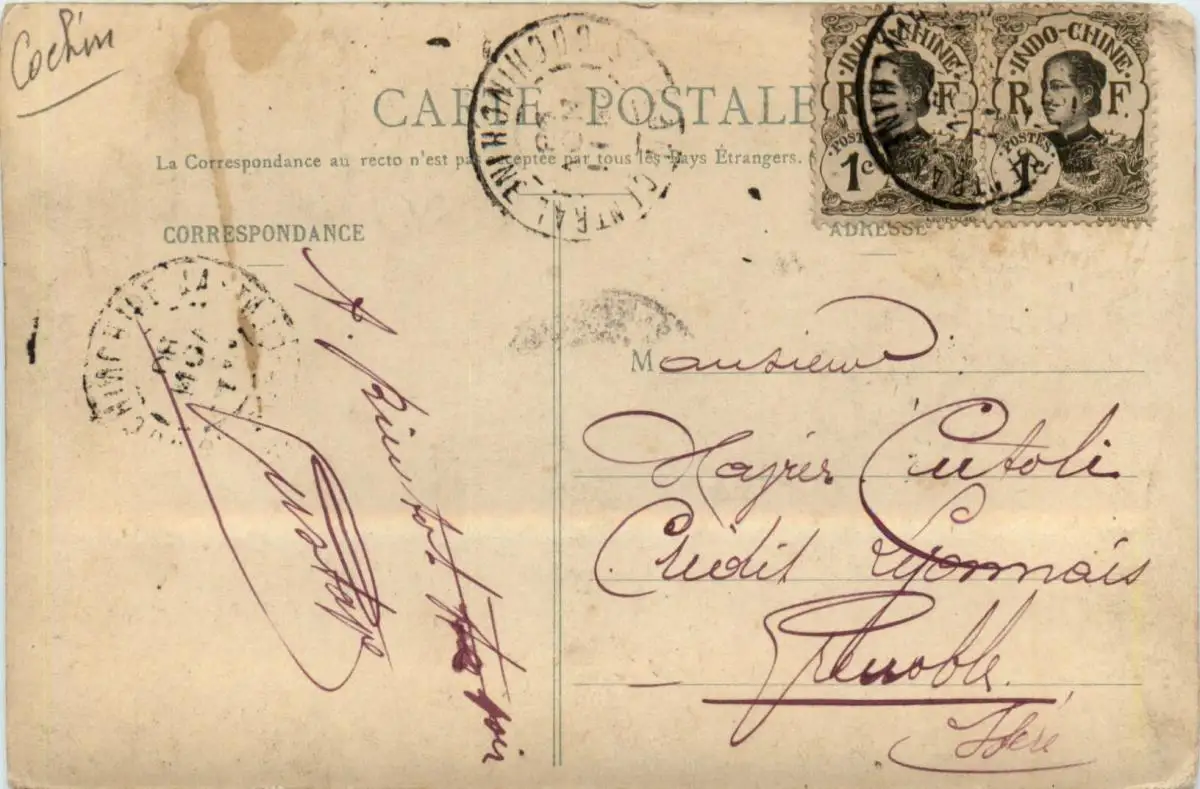 Cochin
CARTE POSTALE
La Correspondance au recto n'est pas acceptée par tous les Pays Étrangers.
INDO-CHINE
R F
POSTES
1c
INDO-CHINE
R F
POSTES
1
COCHINCHINE
CENTRAL
CORRESPONDANCE
ADRESSE
COCHINCHINE
A. Bientôt
Monsieur
Cutoli
Crédit Lyonnais
Grenoble
Isère